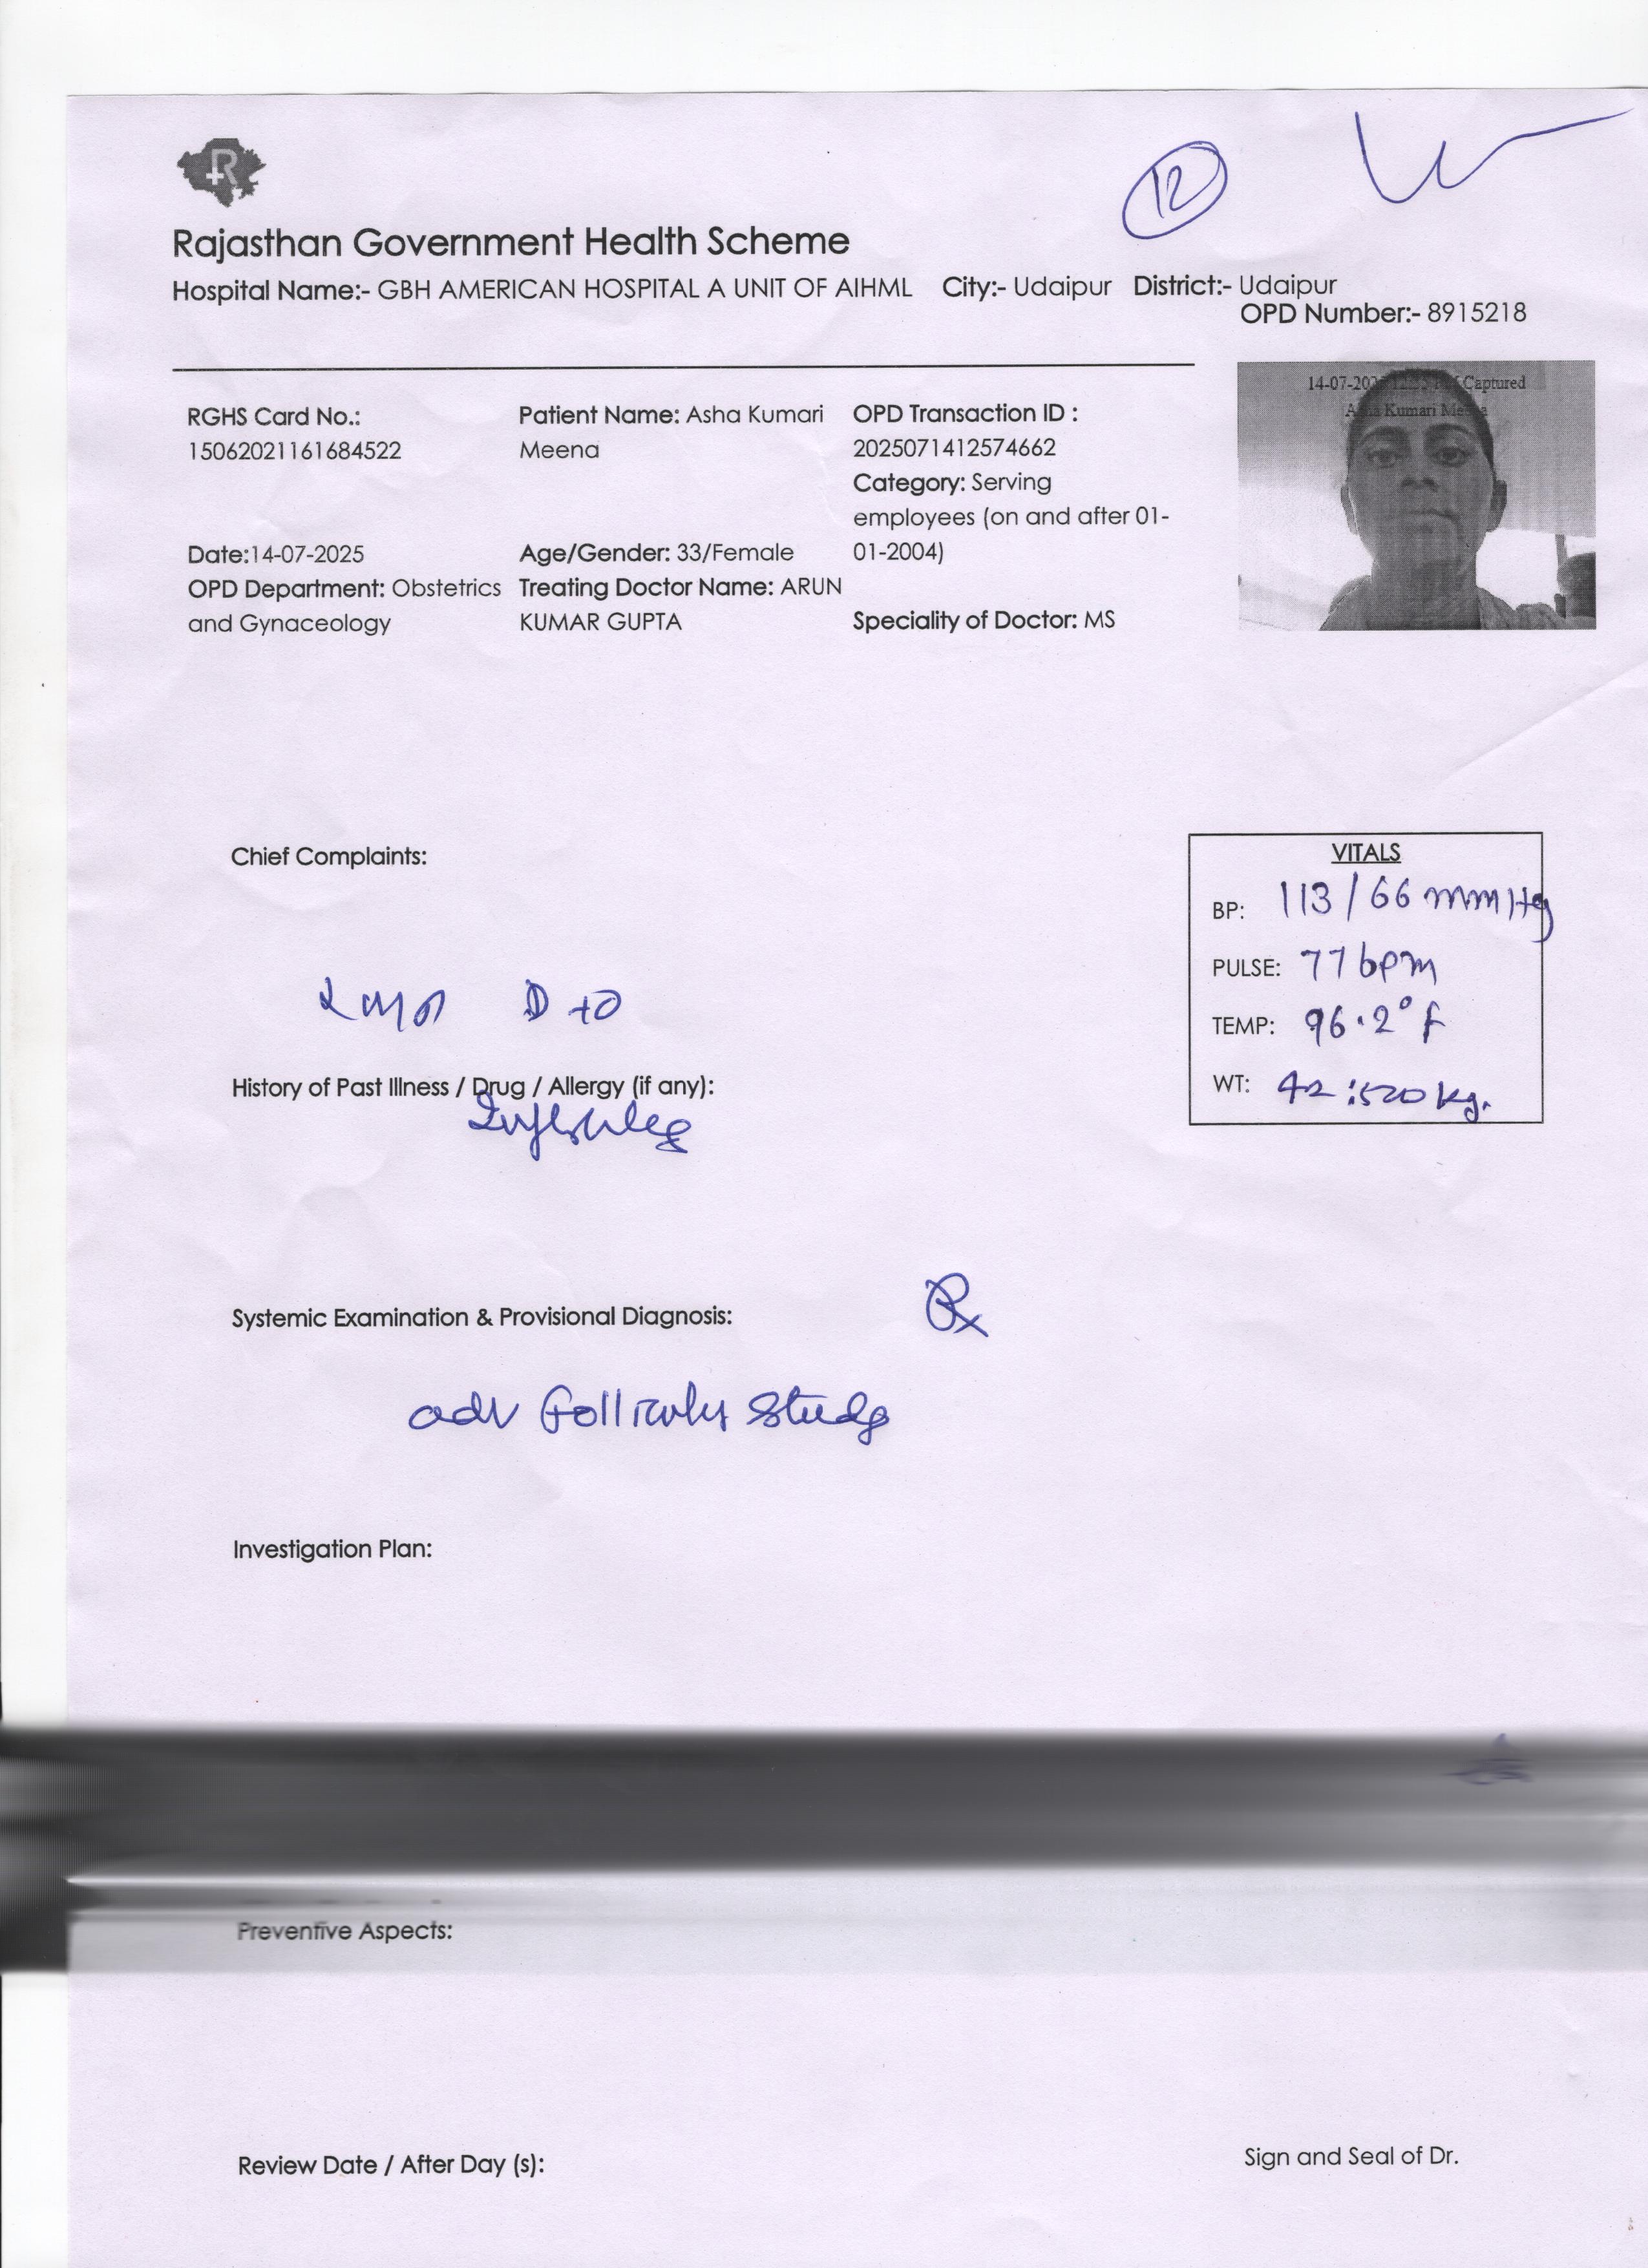 R
12
Rajasthan Government Health Scheme
Hospital Name:- GBH AMERICAN HOSPITAL A UNIT OF AIHML City:- Udaipur District:- Udaipur
OPD Number:- 8915218
14-07-202 Captured
Asha Kumari Meena
RGHS Card No.: Patient Name: Asha Kumari OPD Transaction ID :
15062021161684522 Meena 2025071412574662
Category: Serving
employees (on and after 01-
Date:14-07-2025 Age/Gender: 33/Female 01-2004)
OPD Department: Obstetrics Treating Doctor Name: ARUN
and Gynaceology KUMAR GUPTA Speciality of Doctor: MS
Chief Complaints:
VITALS
BP: 113/66 mmHg
PULSE: 77 bpm
TEMP: 96.2°F
WT: 42:520 kg.
History of Past Illness / Drug / Allergy (if any):
Rx
Systemic Examination & Provisional Diagnosis:
adv Follicular Study
Investigation Plan:
Preventive Aspects:
Review Date / After Day (s):
Sign and Seal of Dr.